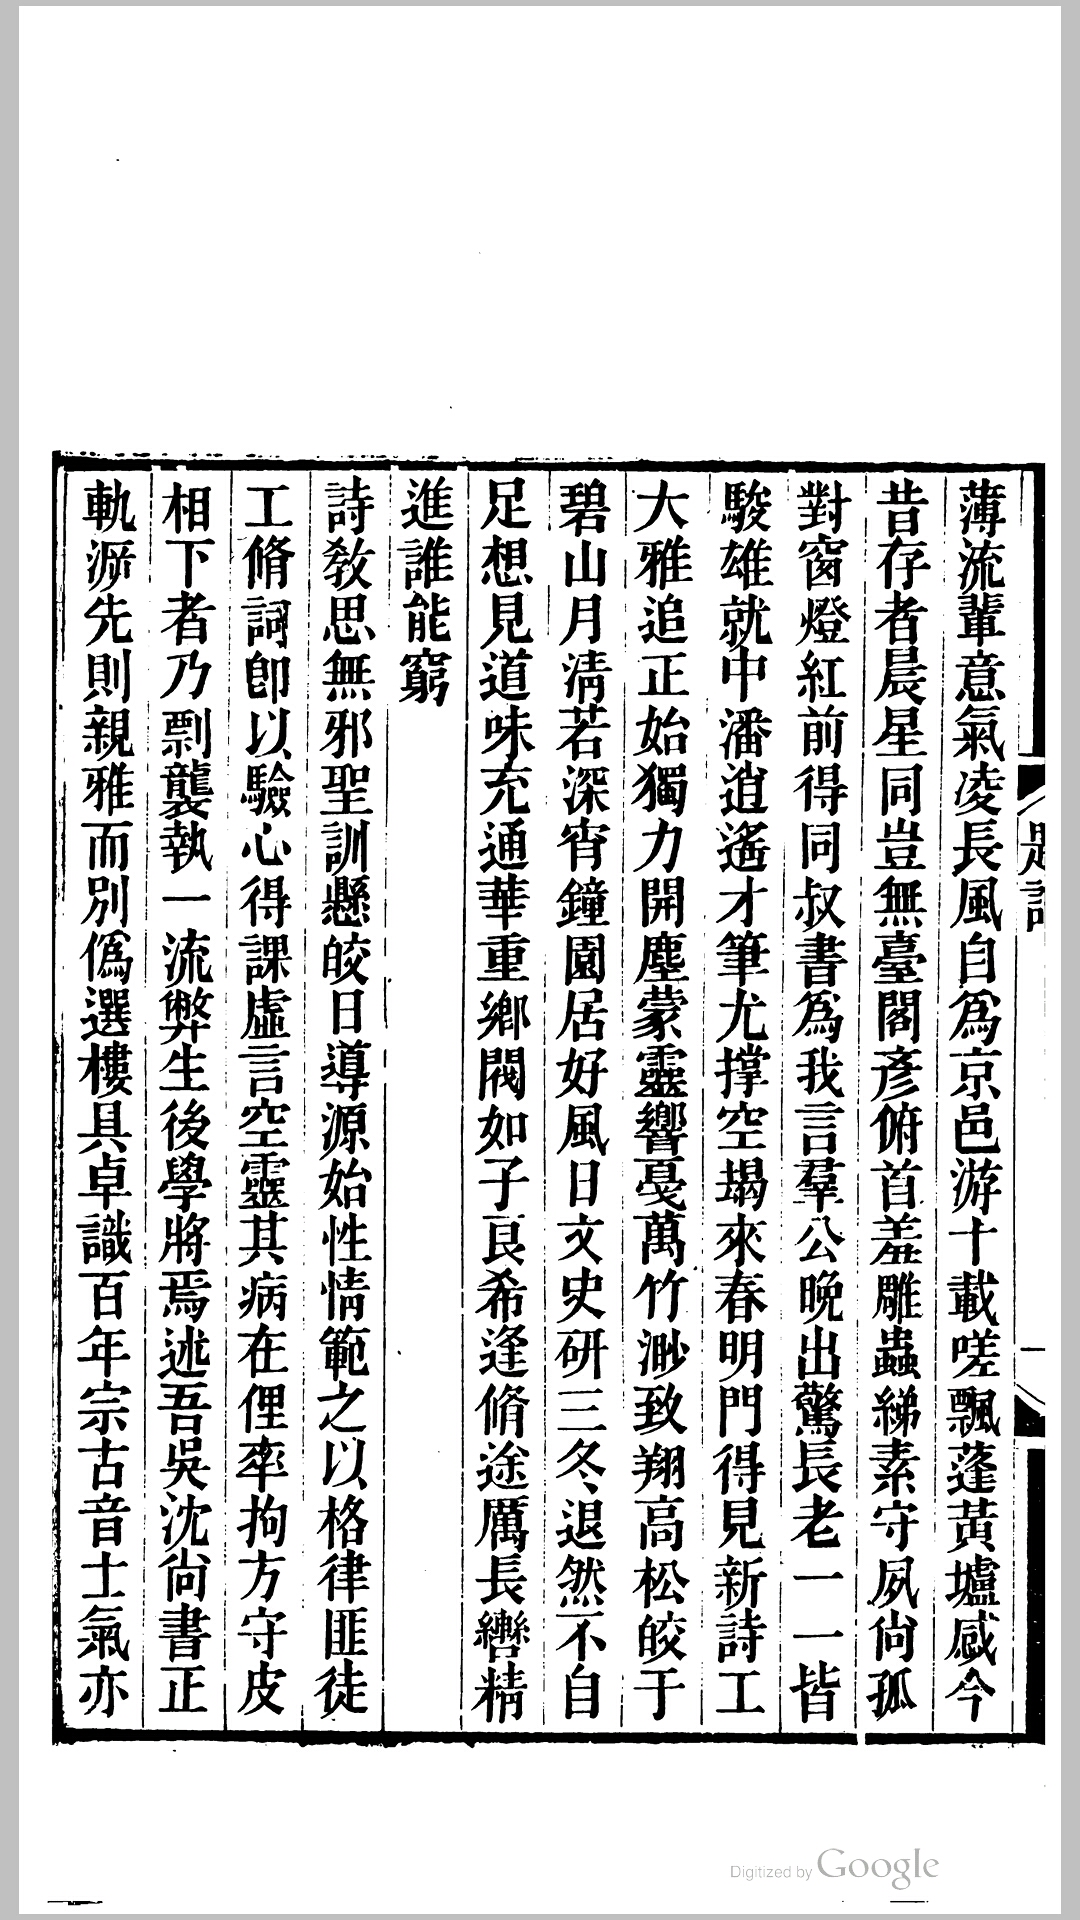 薄流輩意氣凌長風自爲京邑游十載嗟飄蓬黃壚感今
昔存者晨星同豈無臺閣彥俯首羞雕蟲綈素守夙尙孤
對窗燈紅前得同叔書爲我言羣公晚出驚長老一一皆
駿雄就中潘逍遙才筆尤撑空朅來春明門得見新詩工
大雅追正始獨力開塵蒙靈響戛萬竹渺致翔高松皎于
碧山月淸若深宵鐘園居好風日文史硏三冬退然不自
足想見道味充通華重鄉閥如子良希逢脩途厲長轡精
進誰能窮
詩敎思無邪聖訓懸皎日導源始性情範之以格律匪徒
工脩詞卽以驗心得課虛言空靈其病在俚率拘方守皮
相下者乃剽襲執一流弊生後學將焉述吾吳沈尙書正
軌泝先則親雅而別僞選樓具卓識百年宗古音士氣亦
題詞
一
Digitized by Google